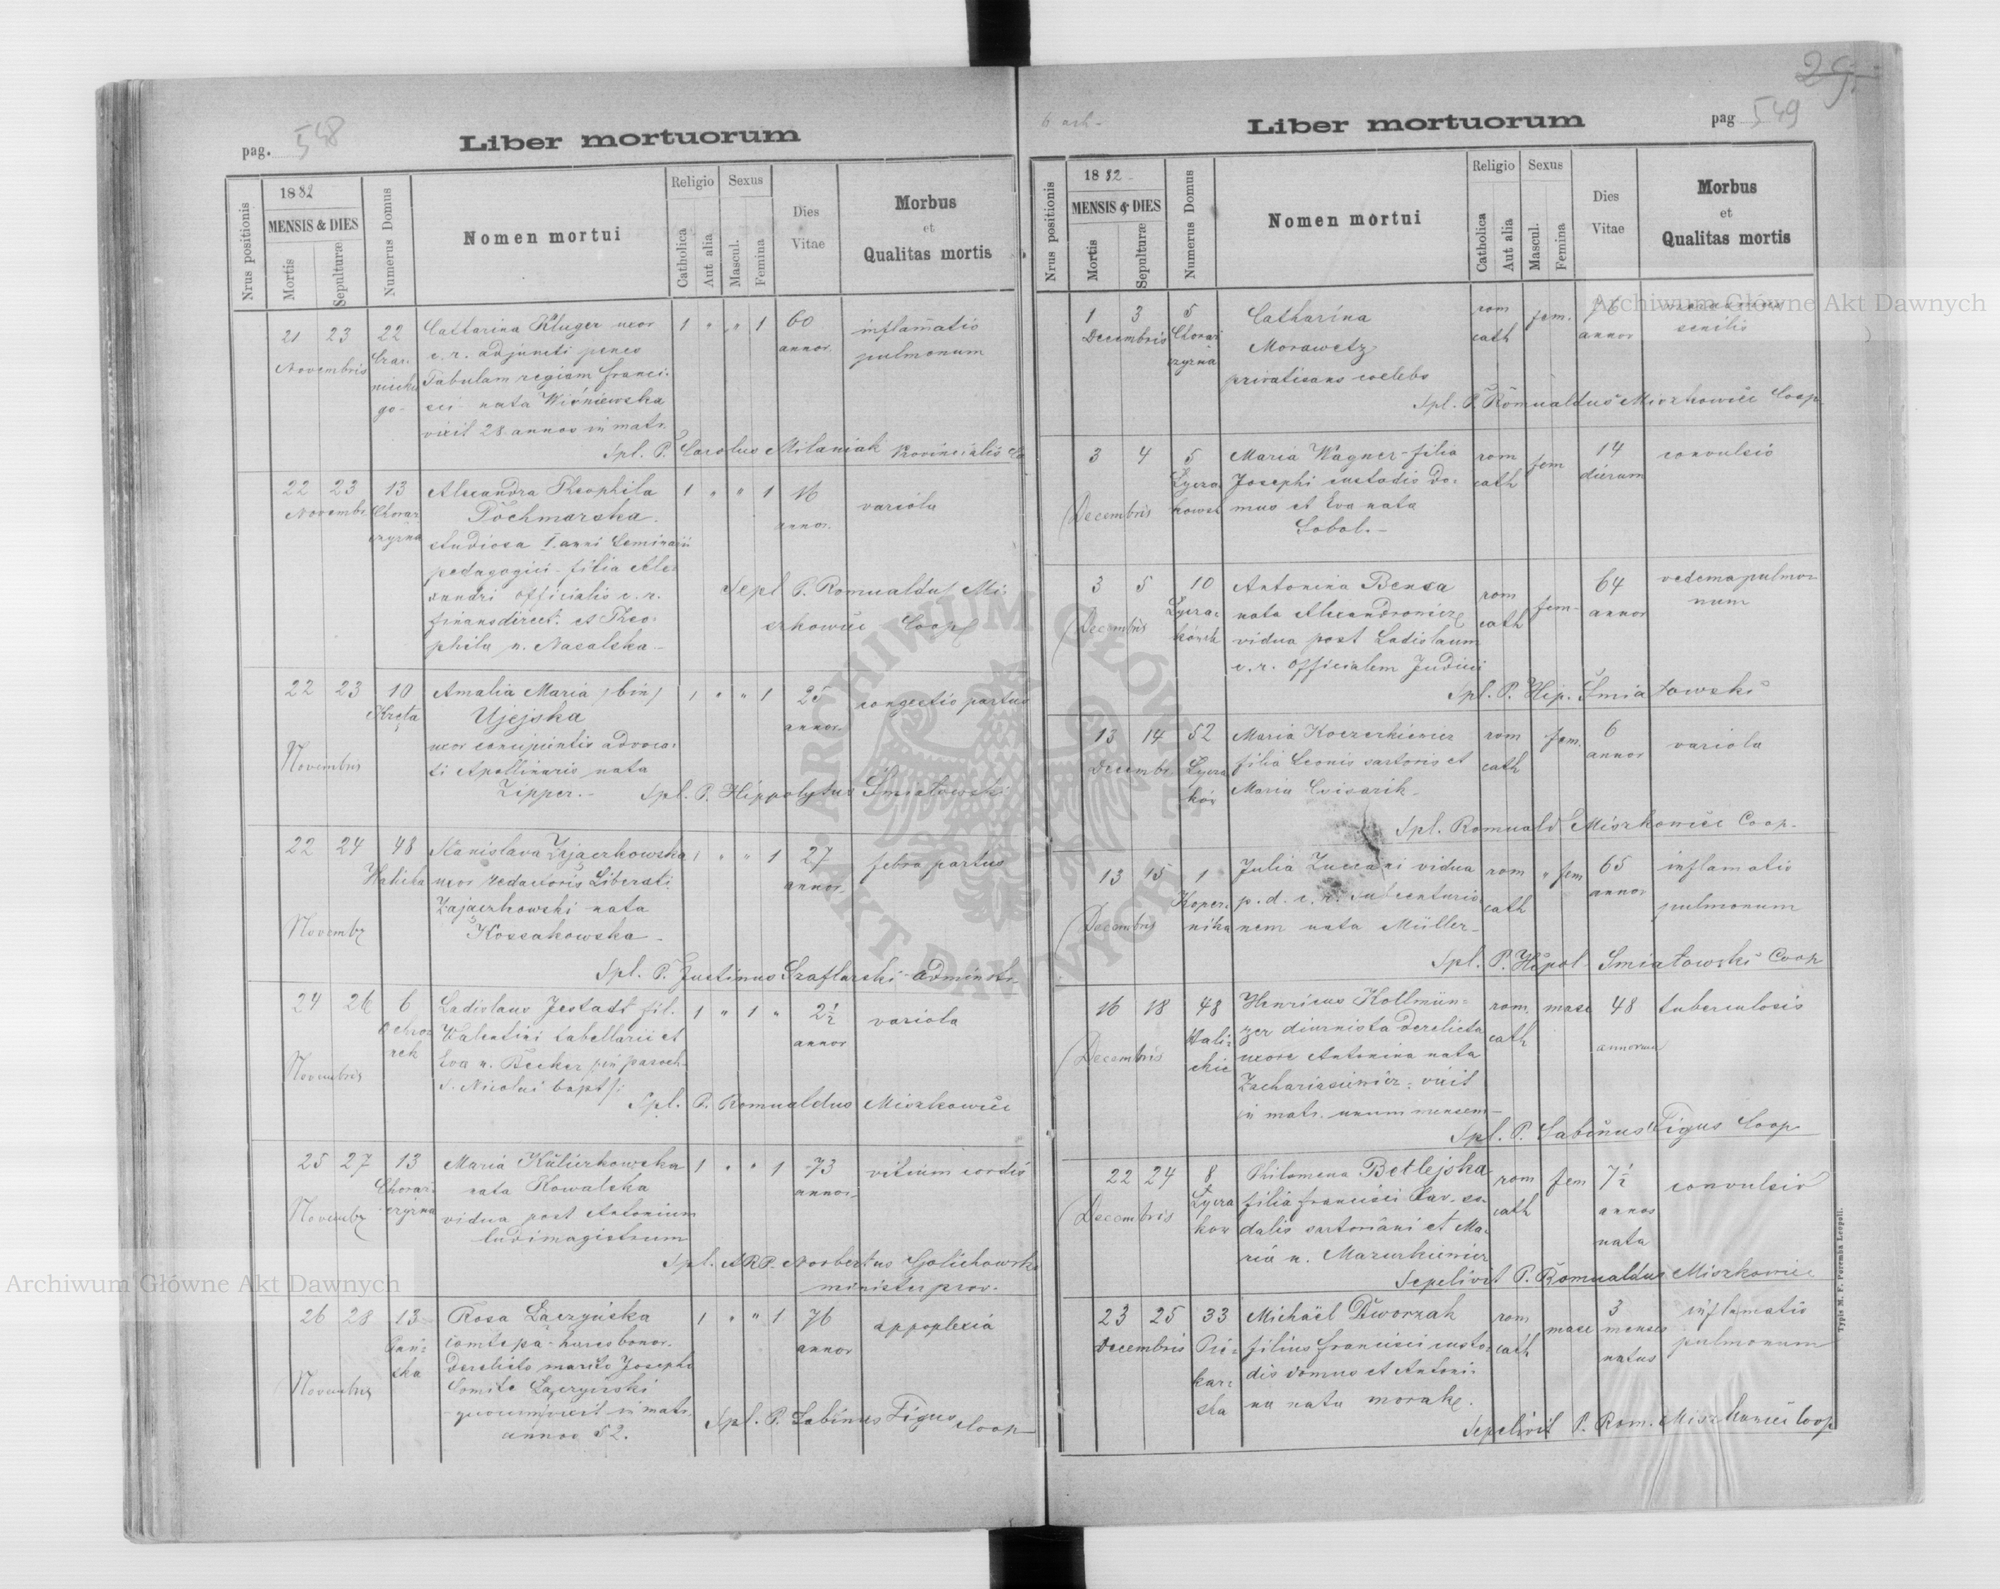 pag. 548
Liber mortuorum
Nrus positionis
1882
MENSIS & DIES
Mortis
Sepulturæ
Numerus Domus
Nomen mortui
Religio
Catholica
Aut alia
Sexus
Mascul.
Femina
Dies
Vitae
Morbus
et
Qualitas mortis
21 23 22 Catharina Kluger uxor 1 " " 1 60 inflamatio
Novembris c. r. adjuncti penes annor. pulmonum
Tabulam regiam Franci-
go- sci nata Wiśniewska
vixit 28 annos in matr.
Spl. P. Carolus Milaniak Provincialis
22 23 13 Alexandra Theophila 1 " " 1 16 variola
Novembr Chorąż Pochmarska. annor.
czyzna studiosa I. anni Seminarii
pedagogici - filia Ale-
xandri officialis c. r.
finansdirect. et Theo-
phila n. Nasalska -
Sepl P. Romualdus Mi-
szkowicz Coop
22 23 10 Amalia Maria /bin/ 1 " " 1 25 congestio partus
Kręta Ujejska annor.
Novembris uxor concipientis advoca-
ti Apollinaris nata
Zipper. -
Spl. P. Hippolytus Śmiałowski
22 24 48 Stanislava Zajączkowska 1 " " 1 27 febra partus
Halicka uxor redactoris Liberati annor.
Novembr Zajączkowski nata
Kossakowska -
Spl. P. Justinus Szaflarski administr.
24 26 6 Ladislaus Jestadt fil. 1 " 1 " 2½ variola
Valentini tabellarii et annor
Novembris Eva n. Becker paroch.
S. Nicolai bapt/:
Spl. P. Romualdus Miszkowicz
25 27 13 Maria Kulierkowska 1 " " 1 73 vitium cordis
Chorąż- nata Kowalska annor.
Novembr czyzna vidua post Antonium
ludimagistrum
Spl. ARP. Norbertus Golichowski
minister prov.
26 28 13 Rosa Łączyńska 1 " " 1 76 appoplexia
Pań- annor
ska derelicto marito Josepho
Novembris Comite Łączyński
vixit in matr.
annos 52.
Spl. P. Sabinus Figus Coop
29.
6 ark-
Liber mortuorum
pag 549
Nrus positionis
1882
MENSIS & DIES
Mortis
Sepulturæ
Numerus Domus
Nomen mortui
Religio
Catholica
Aut alia
Sexus
Mascul.
Femina
Dies
Vitae
Morbus
et
Qualitas mortis
1 3 5 Catharina rom fem.
Decembris Chorąż Morawetz cath annor senilis
czyzna privatisans coelebs
Spl. P. Romualdus Miszkowicz Coop
3 4 5 Maria Wagner - filia rom fem 14 convulsio
Łycza Josephi custodis do- cath dierum
Decembris kowsk mus et Eva nata
Sobol. -
3 5 10 Antonina Bensa rom fem- 64 oedema pulmo-
Łycza- nata Alexandrowicz cath annor num
Decembris kowsk vidua post Ladislaum
c. r. officialem Judici
Spl. P. Hip. Śmiałowski
13 14 52 Maria Koczerkiewicz rom fem. 6 variola
Decembr Łycza filia Leonis sartoris et cath annor
ków Maria Cvisarik -
Spl. Romuald Miszkowicz Coop.
13 15 1 Julia Zuccani vidua rom " fem 65 inflamatio
Koper- p. d. c. r. subcenturio- cath annor pulmonum
Decembris nika nem nata Müller -
Spl. P. Hipol. Śmiałowski Coop
16 18 48 Henricus Kollmün- rom. masc 48 tuberculosis
Hali- zer diurnista derelicta cath annorum
Decembris ckie uxore Antonina nata
Zachariasiewicz : vixit
in matr. unum mensem -
Spl. P. Sabinus Figus Coop.
22 24 8 Philomena Betlejska rom fem 7½ convulsio
Łycza filia Francisci cath annos
Decembris kow dalis sartoriani et Ma- nata
ria n. Mazurkiewicz
Sepelivit P. Romualdus Miszkowicz
23 25 33 Michaël Dworzak rom masc 3 inflamatio
Decembris Pie- filius Francisci custo- cath menses pulmonum
kar- dis domus et Antoni- natus
ska na nata morak.
Sepelivit P. Rom. Miszkowicz Coop
Typis M. F. Poremba Leopoli.
Archiwum Główne Akt Dawnych
Archiwum Główne Akt Dawnych
ARCHIWUM GŁÓWNE AKT DAWNYCH